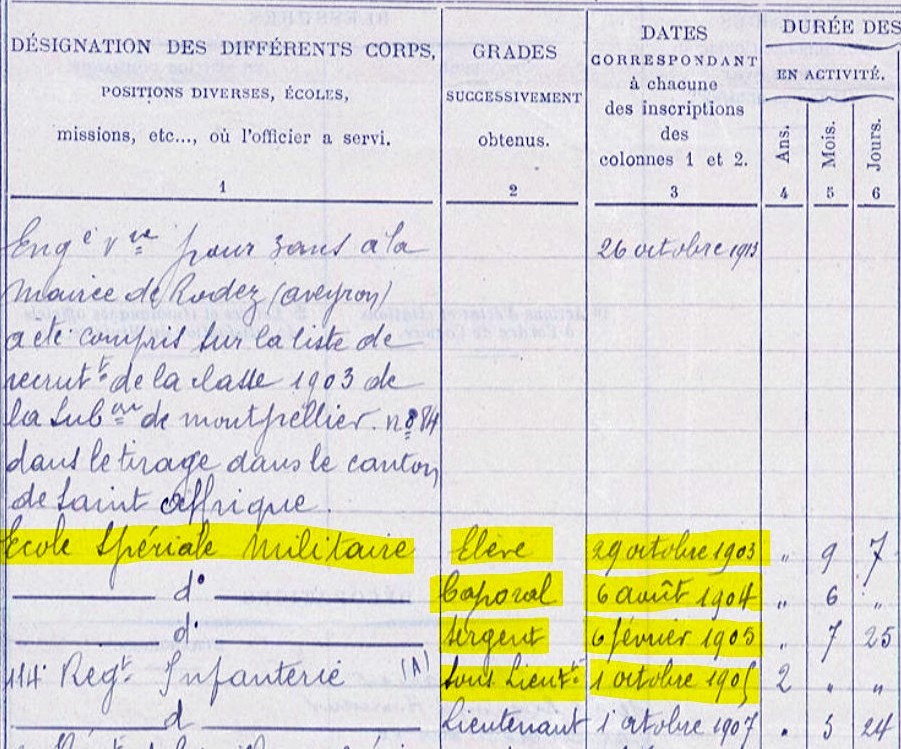 DÉSIGNATION DES DIFFÉRENTS CORPS,
POSITIONS DIVERSES, ÉCOLES,
missions, etc..., où l'officier a servi.
1
GRADES
SUCCESSIVEMENT
obtenus.
2
DATES
CORRESPONDANT
à chacune
des inscriptions
des
colonnes 1 et 2.
3
DURÉE DES
EN ACTIVITÉ.
Ans.
Mois.
Jours.
4
5
6
Engé vre pour 3 ans à la 26 octobre
Mairie de Rodez (aveyron)
a été compris sur la liste de
recrutt de la classe 1903 de
la Subon de montpellier. no 84
dans le tirage dans le canton
de Saint Affrique.
Ecole Spériale Militaire Elève 29 octobre 1903 " 9 7
do Caporal 6 août 1904 " 6 "
do Sergent 6 février 1905 " 7 25
114e Regt Infanterie (A) Sous Lieutt 1 octobre 1905 2 " "
d Lieutenant 1 octobre 1907 " 5 24